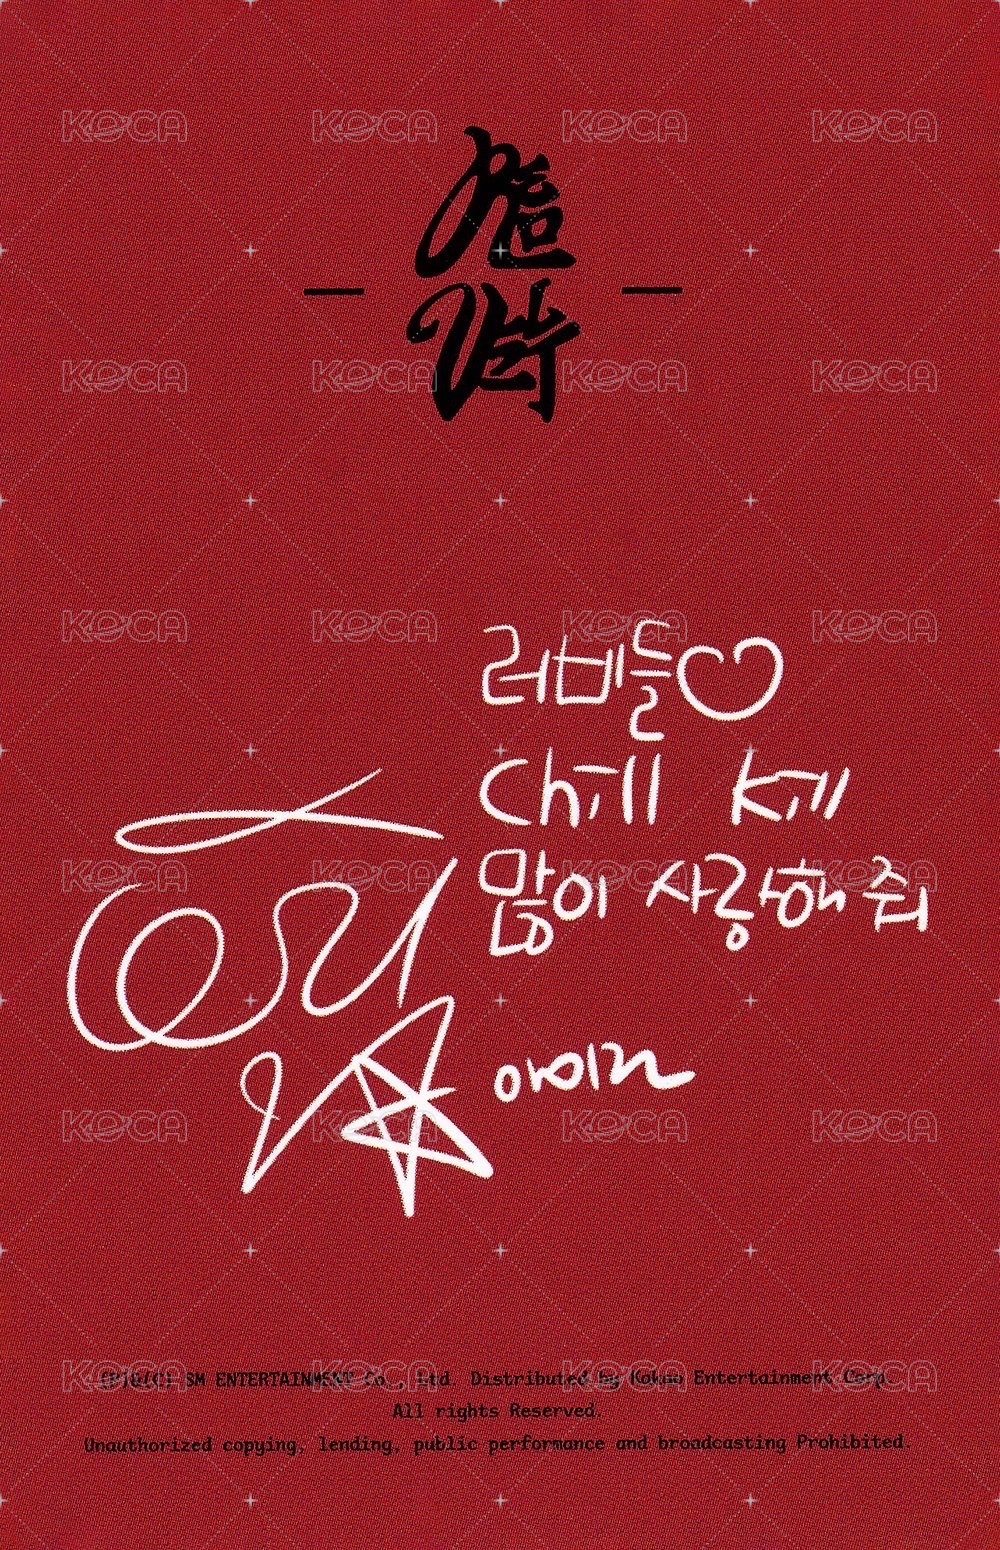 KOCA KOCA KOCA KOCA
KOCA KOCA KOCA KOCA
KOCA KOCA KOCA KOCA
러비들♡
Chill Kill
KOCA KOCA KOCA KOCA
많이 사랑해줘
아이린
KOCA KOCA KOCA KOCA
KOCA KOCA KOCA KOCA
(P)&(C) SM ENTERTAINMENT Co., Ltd. Distributed by Kakao Entertainment Corp.
All rights Reserved.
Unauthorized copying, lending, public performance and broadcasting Prohibited.